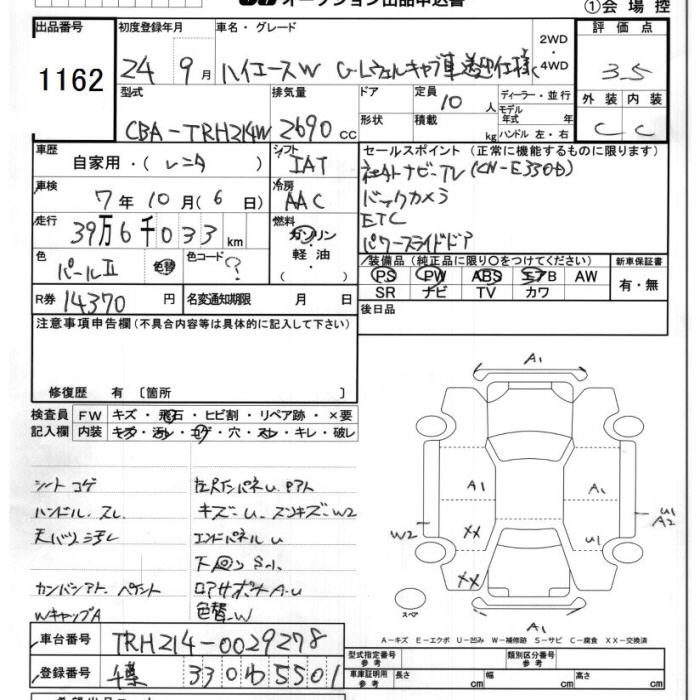 オークション出品申込書
①会場控
出品番号 1162
初度登録年月 24 9月
車名・グレード ハイエースW G-Lウェルキャブ車送迎仕様
2WD・4WD
評価点 3.5
外装 内装
C C
型式 CBA-TRH214W
排気量 2690cc
ドア
形状
定員 10人
積載 kg
ディーラー・並行
モデル年式 年
ハンドル 左・右
車歴 自家用・(レンタ)
シフト IAT
車検 7年10月(6日)
冷房 AAC
走行 39万6千033km
燃料 ガソリン・軽油・( )
色 パールⅡ 色替
色コード ?
R券 14370円
名変通知期限 月 日
セールスポイント(正常に機能するものに限ります)
社外ナビ-TV(CN-E330D)
バックカメラ
ETC
パワースライドドア
装備品(純正品に限り○をつけてください)
PS PW ABS エアB AW
SR ナビ TV カワ
新車保証書
有・無
後日品
注意事項申告欄(不具合内容等は具体的に記入して下さい)
修復歴 有〔箇所 〕
検査員記入欄
FW キズ・飛石・ヒビ割・リペア跡・×要
内装 キズ・汚レ・コゲ・穴・スレ・キレ・破レ
シートコゲ
ハンドル、スレ
天バリ汚レ
カンバンアト、ペイント
WキャップA
キズ-U、スリキズ-W2
エンドパネルU
下回りS小
ロアサポートA-U
色替-W
A1
A1
XX
XX
A1
U1
U1
A2
W2
A1
スペア
A-キズ E-エクボ U-凹み W-補修跡 S-サビ C-腐食 XX-交換済
車台番号 TRH214-0029278
登録番号 千葉 330 わ 5501
型式指定番号 参考
類別区分番号 参考
車庫証明用 参考 長さ cm 幅 cm 高さ cm